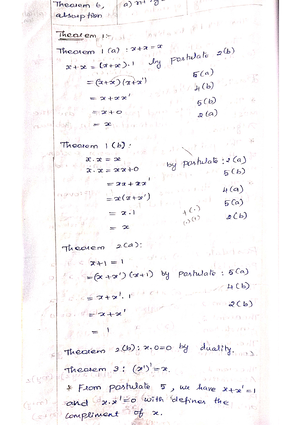 Theorem 6,
absorption
Theorem 1:-
Theorem 1(a) : x+x=x
x+x = (x+x).1 by postulate 2(b)
=(x+x)(x+x') 5(a)
= x+xx' 4(b)
= x+0 5(b)
= x 2(a)
Theorem 1(b):
x.x = x by postulate : 2(a)
x.x = xx+0 5(b)
= xx+xx' 4(a)
= x(x+x') 5(a)
= x.1 2(b)
= x
Theorem 2(a):
x+1 = 1
=(x+x')(x+1) by postulate : 5(a)
= x+x'.1 4(b)
= x+x' 2(b)
= 1
Theorem 2(b): x.0=0 by duality.
Theorem 3: (x')'=x.
From postulate 5, we have x+x'=1
and x.x'=0 with defines the
compliment of x.